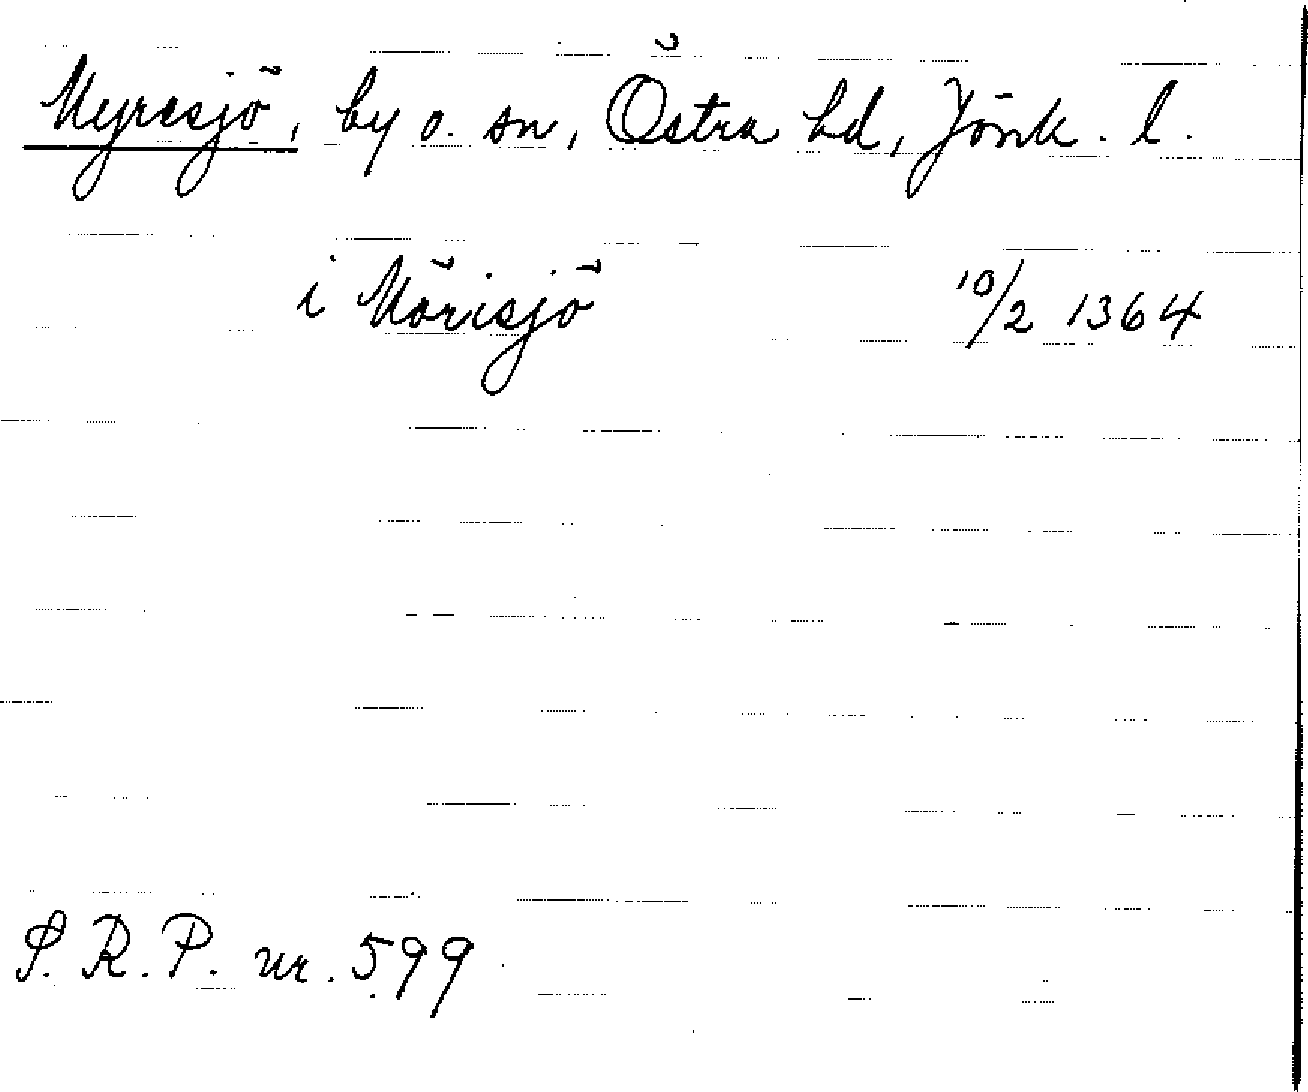 Myresjö, by o. sn, Östra hd, Jönk. l.
i Mörisjö 10/2 1364
S. R. P. nr. 599